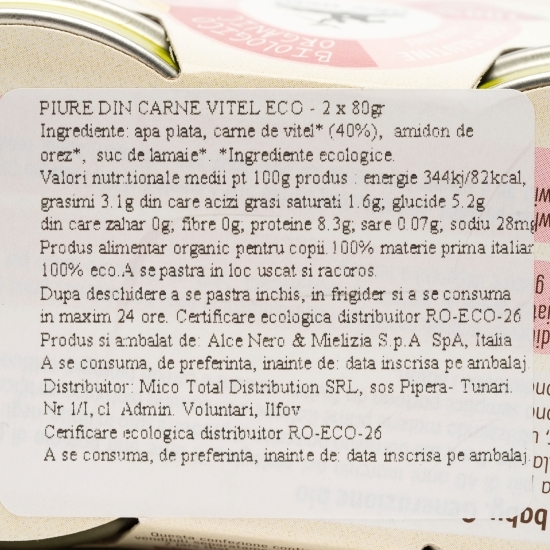 BIOLOGICO
ORGANIC
PIURE DIN CARNE VITEL ECO - 2 x 80gr
Ingrediente: apa plata, carne de vitel* (40%), amidon de
orez*, suc de lamaie*. *Ingrediente ecologice.
Valori nutritionale medii pt 100g produs : energie 344kj/82kcal,
grasimi 3.1g din care acizi grasi saturati 1.6g; glucide 5.2g
din care zahar 0g; fibre 0g; proteine 8.3g; sare 0.07g; sodiu 28mg
Produs alimentar organic pentru copii.100% materie prima italian
100% eco.A se pastra in loc uscat si racoros.
Dupa deschidere a se pastra inchis, in frigider si a se consuma
in maxim 24 ore. Certificare ecologica distribuitor RO-ECO-26
Produs si ambalat de: Alce Nero & Mielizia S.p.A SpA, Italia
A se consuma, de preferinta, inainte de: data inscrisa pe ambalaj.
Distribuitor: Mico Total Distribution SRL, sos Pipera- Tunari.
Nr 1/I, cl Admin. Voluntari, Ilfov
Cerificare ecologica distribuitor RO-ECO-26
A se consuma, de preferinta, inainte de: data inscrisa pe ambalaj
Questa confezione